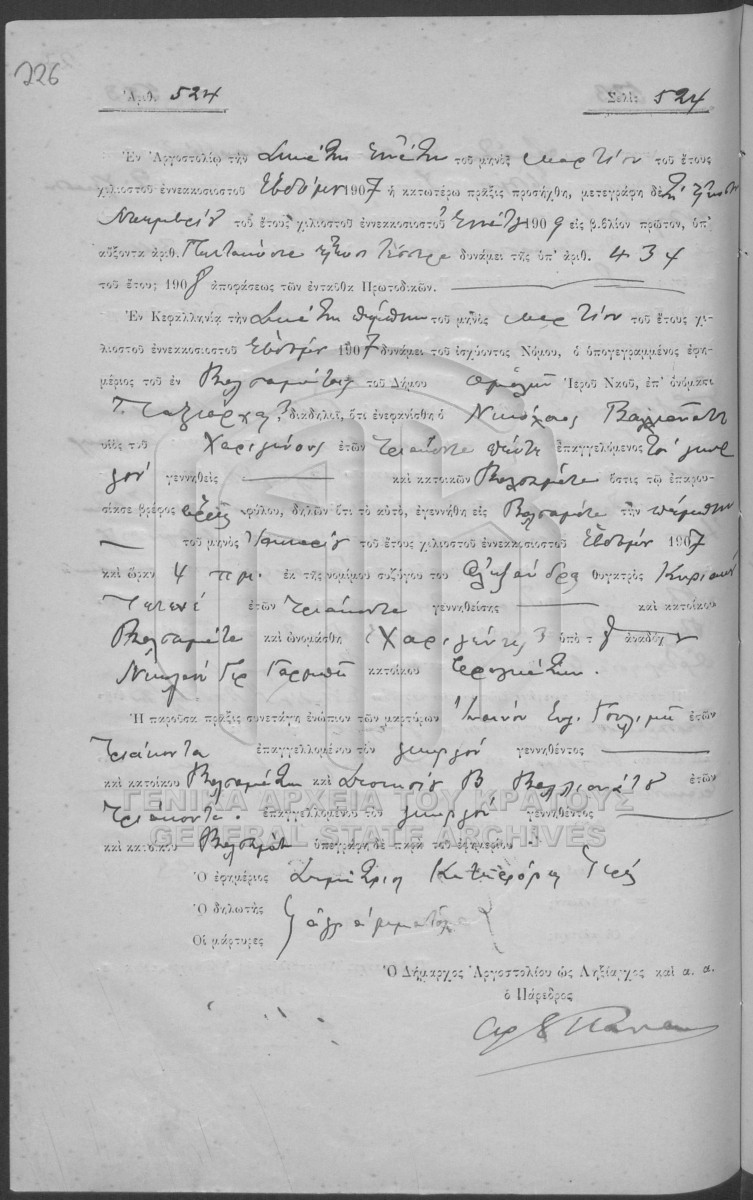 226
Ἀριθ. 524
Σελὶς 524
Ἐν Ἀργοστολίῳ τὴν δεκάτην ἐνάτην τοῦ μηνὸς Μαρτίου τοῦ ἔτους
χιλιοστοῦ ἐννεακοσιοστοῦ ἑβδόμου 1907 ἡ κατωτέρω πρᾶξις προσήχθη, μετεγράφη δὲ
τοῦ ἔτους χιλιοστοῦ ἐννεακοσιοστοῦ ἐννάτου 1909 εἰς βιβλίον πρῶτον, ὑπ'
αὔξοντα ἀριθ. Πεντακόσια εἴκοσι τέσσερα δυνάμει τῆς ὑπ' ἀριθ. 434
τοῦ ἔτους 1908 ἀποφάσεως τῶν ἐνταῦθα Πρωτοδικῶν.
Ἐν Κεφαλληνίᾳ τὴν δεκάτην πέμπτην τοῦ μηνὸς Μαρτίου τοῦ ἔτους χι-
λιοστοῦ ἐννεακοσιοστοῦ ἑβδόμου 1907 δυνάμει τοῦ ἰσχύοντος Νόμου, ὁ ὑπογεγραμμένος ἐφη-
μέριος τοῦ ἐν Βαλσαμάτοις τοῦ Δήμου Ὁμαλῶν Ἱεροῦ Ναοῦ, ἐπ' ὀνόματι
Ταξιάρχης, διαδηλοῖ, ὅτι ἐνεφανίσθη ὁ Νικόλαος Βαλλιανάτος
υἱὸς τοῦ Χαριγένους ἐτῶν τριάκοντα πέντε ἐπαγγελόμενος τὸν γεωρ
γόν γεννηθεὶς καὶ κατοικῶν Βαλσαμάτα ὅστις τῷ ἐπαρου-
σίασε βρέφος ἄρρεν φύλου, δηλῶν ὅτι τὸ αὐτὸ, ἐγεννήθη εἰς Βαλσαμάτα τὴν πέμπτην
τοῦ μηνὸς Ἰανουαρίου τοῦ ἔτους χιλιοστοῦ ἐννεακοσιοστοῦ ἑβδόμου 1907
καὶ ὥραν 4 π.μ. ἐκ τῆς νομίμου συζύγου του Ἀλεξάνδρα θυγατρὸς Κυριακοῦ
ἐτῶν τριάκοντα γεννηθείσης καὶ κατοίκου
Βαλσαμάτα καὶ ὠνομάσθη Χαριγένης ὑπὸ τ ἀναδόχου
κατοίκου Φραγκάτων.
Ἡ παροῦσα πρᾶξις συνετάγη ἐνώπιον τῶν μαρτύρων ἐτῶν
τριάκοντα ἐπαγγελλομένου τὸν γεωργόν γεννηθέντος
καὶ κατοίκου Βαλσαμάτων καὶ Διονυσίου Β. Βαλλιανάτου ἐτῶν
τριάκοντα. ἐπαγγελλομένου τὸν γεωργόν γεννηθέντος
καὶ κατοίκου Βαλσαμάτα ὑπεγράφη δὲ παρὰ τοῦ ἐφημερίου
ΓΕΝΙΚΑ ΑΡΧΕΙΑ ΤΟΥ ΚΡΑΤΟΥΣ
GENERAL STATE ARCHIVES
Ὁ ἐφημέριος Δημήτριος Ἱερεύς
Ὁ δηλωτὴς
Οἱ μάρτυρες
ἀγράμματοι
Ὁ Δήμαρχος Ἀργοστολίου ὡς Ληξίαρχος καὶ α. α.
ὁ Πάρεδρος